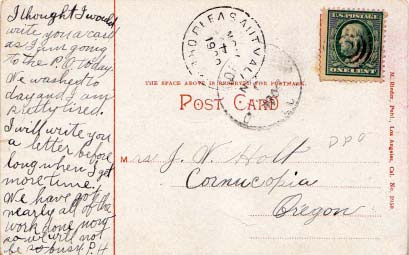 I thought I would
write you a card
as I am going
to the P.O. today.
We washed to
day and I am
pretty tired.
I will write you
a letter before
long when I get
more time.
We have got
nearly all of the
work done now
so we will not
be so busy. P.H.
PLEASANT VAL
NOV
1909
ORE
U.S. POSTAGE
ONE CENT
THE SPACE ABOVE IS RESERVED FOR POSTMARK.
POST CARD
Mrs J. W. Holt
DPO
Cornucopia
Oregon
M. Rieder, Publ., Los Angeles, Cal. No.